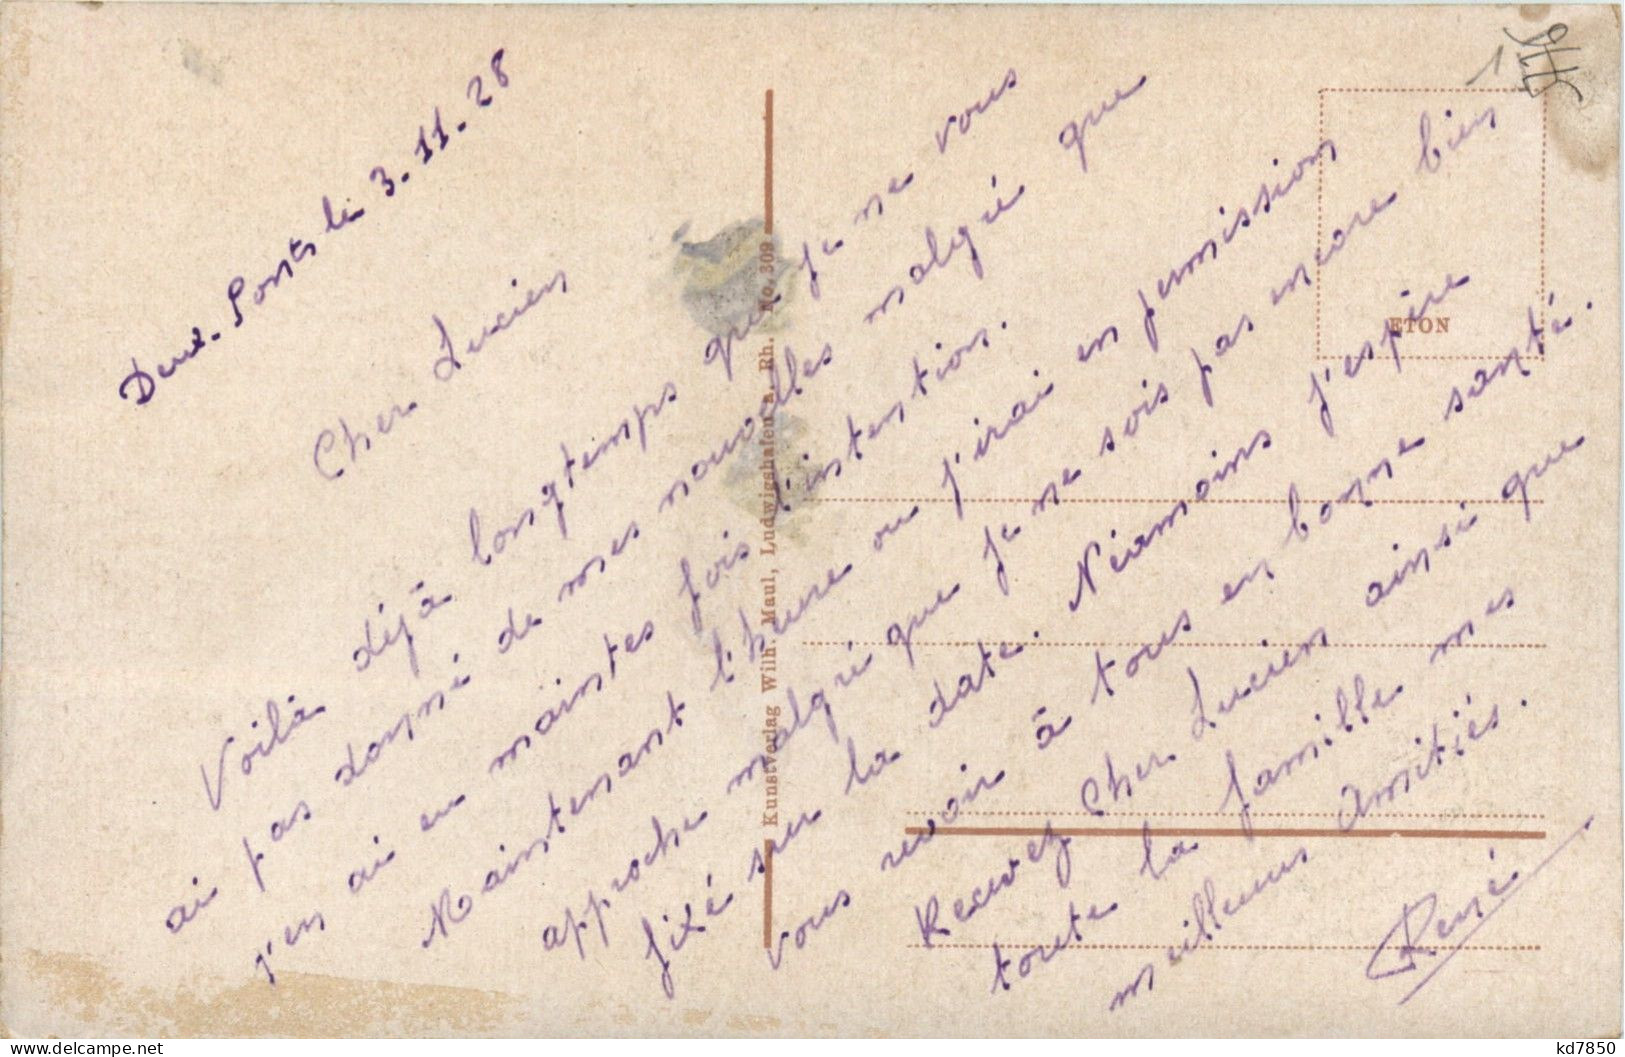 Deux-Ponts le 3-11-28
Cher Lucien
Voilà déjà longtemps que je ne vous
ai pas donné de mes nouvelles malgré que
j'en ai eu maintes fois l'intention.
Maintenant l'heure ou j'irai en permission
approche malgré que je ne sois pas encore bien
fixé sur la date. Néamoins j'espire
vous revoir à tous en bonne santé.
Recevez Cher Lucien ainsi que
toute la famille mes
meilleures Amitiés.
René
Kunstverlag Wilh. Maul, Ludwigshafen a. Rh. No. 309
ETON
1
kd7850